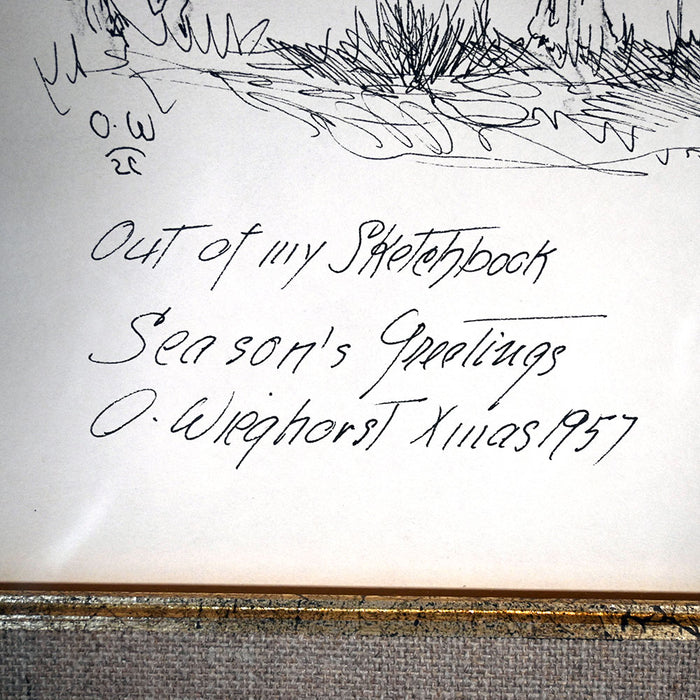 O.W
Out of my Sketchbook
Season's Greetings
O. Wieghorst Xmas 1957